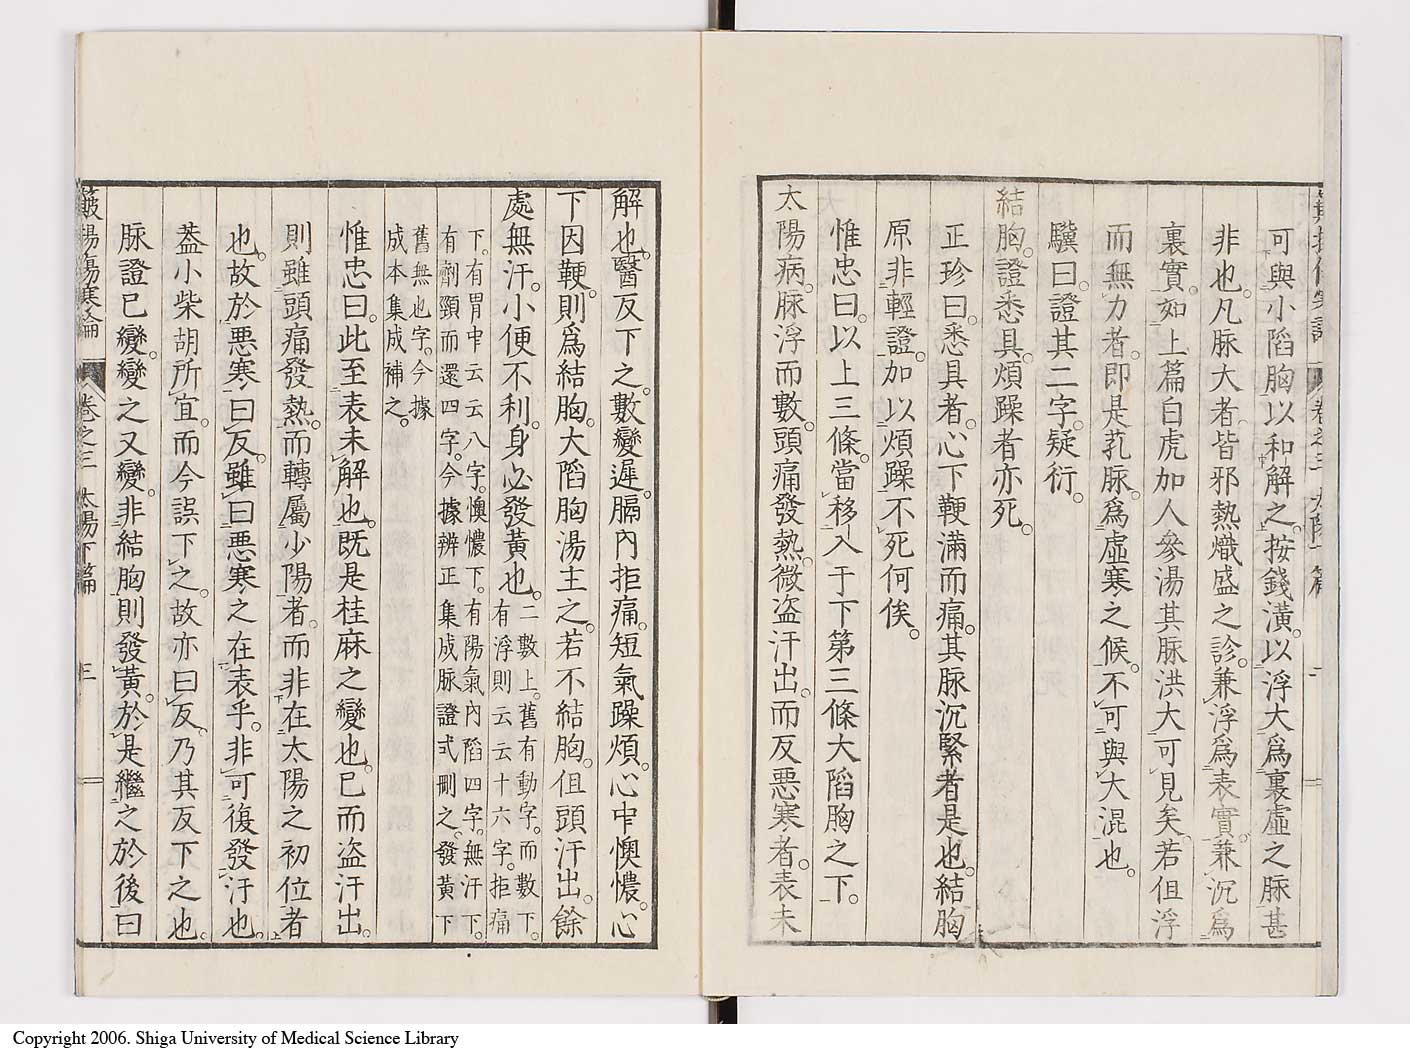 可與小陷胸以和解之按錢潢以浮大爲裏虛之脉甚
非也凡脉大者皆邪熱熾盛之診兼浮爲表實兼沉爲
裏實如上篇白虎加人參湯其脉洪大可見矣若但浮
而無力者即是芤脉爲虛寒之候不可與大混也
驥曰證其二字疑衍
結胸證悉具煩躁者亦死
正珍曰悉具者心下鞕滿而痛其脉沉緊者是也結胸
原非輕證加以煩躁不死何俟
惟忠曰以上三條當移入于下第三條大陷胸之下
太陽病脉浮而數頭痛發熱微盜汗出而反惡寒者表未
解也醫反下之數變遲膈內拒痛短氣躁煩心中懊憹心
下因鞕則爲結胸大陷胸湯主之若不結胸但頭汗出餘
處無汗小便不利身必發黃也二數上舊有動字而數下
有浮則云云十六字拒痛
下有胃中云云八字懊憹下有陽氣內陷四字無汗下
有劑頸而還四字今據辨正集成脉證式刪之發黃下
舊無也字今據
成本集成補之
惟忠曰此至表未解也既是桂麻之變也已而盜汗出
則雖頭痛發熱而轉屬少陽者而非在太陽之初位者
也故於惡寒曰反雖曰惡寒之在表乎非可復發汗也
葢小柴胡所宜而今誤下之故亦曰反乃其反下之也
脉證已變變之又變非結胸則發黃於是繼之於後曰
傷寒論 卷之三 太陽下篇 三